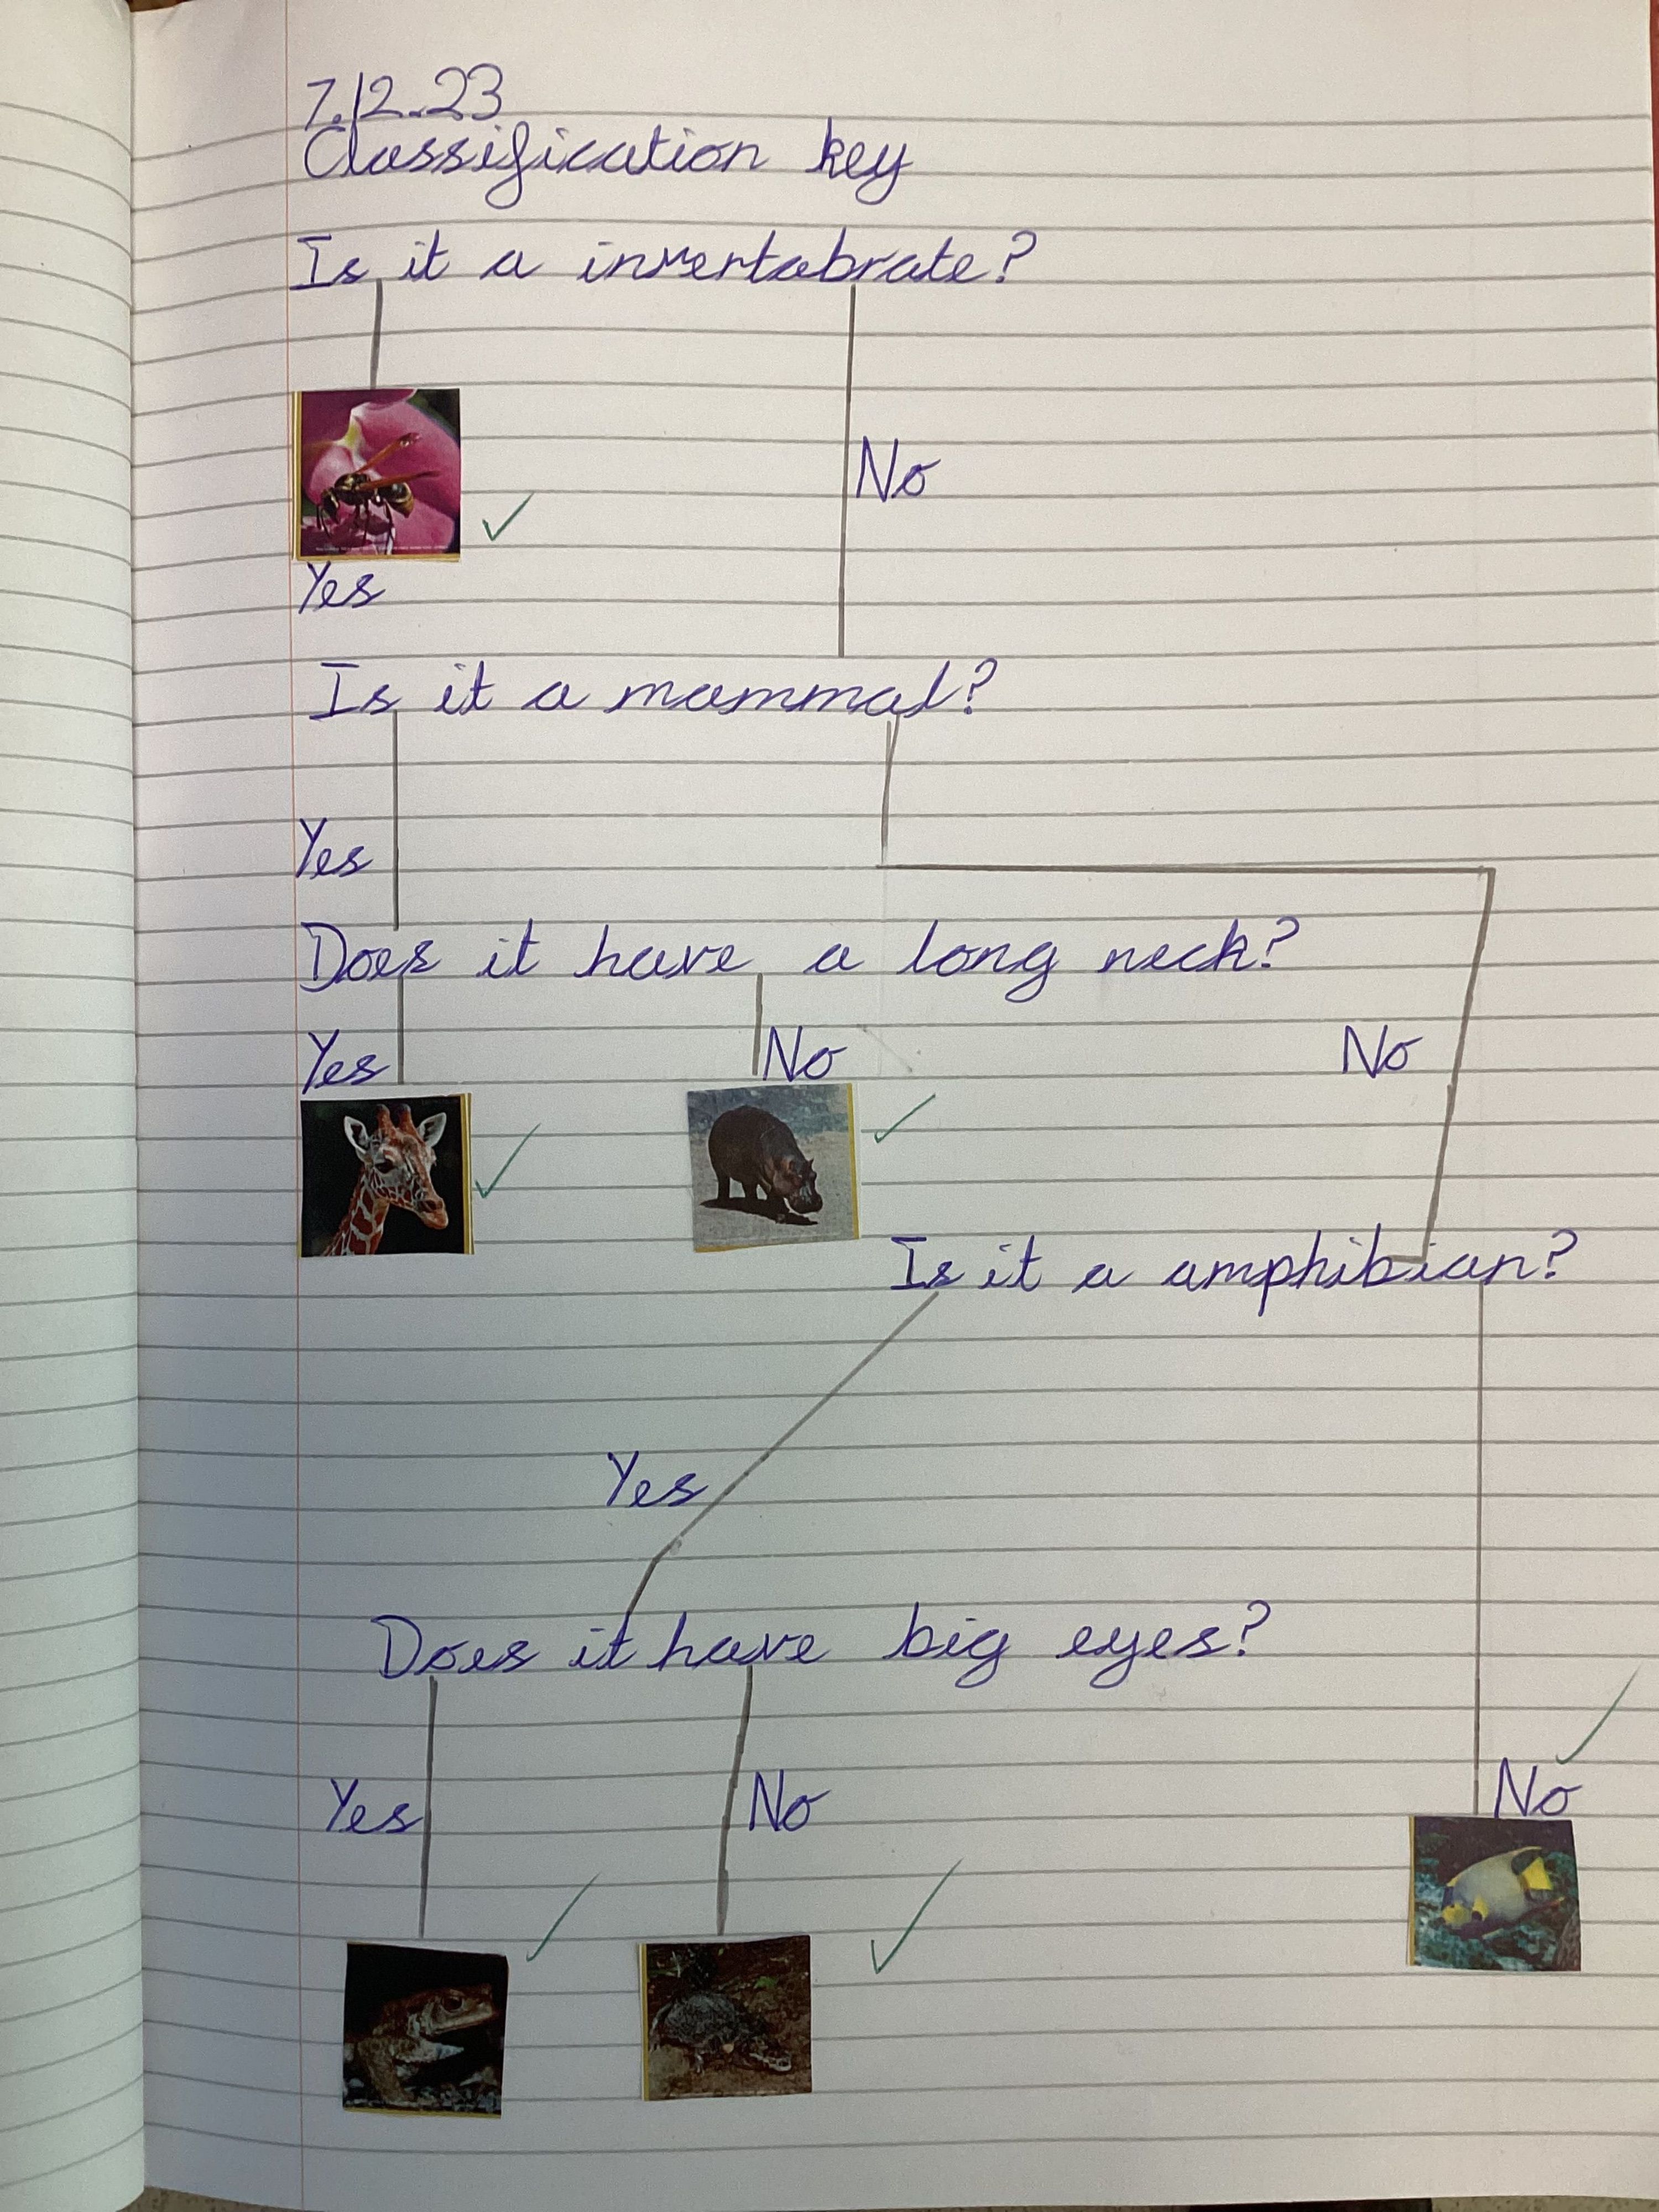 7.12.23
Classification key
Is it a invertabrate?
No
Yes
Is it a mammal?
Yes
Does it have a long neck?
Yes
No
No
Is it a amphibian?
Yes
Does it have big eyes?
Yes
No
No